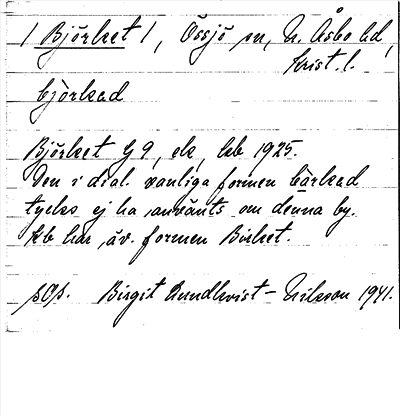 1 Björket 1, Össjö sn, N. Åsbo hd,
Krist. l.
bjòrkad
Björket G 9, ek, kb 1925.
Den i dial. vanliga formen bàrkad
tycks ej ha använts om denna by.
Kb har äv. formen Birket.
sOs. Birgit Rundkvist - Nilsson 1941.